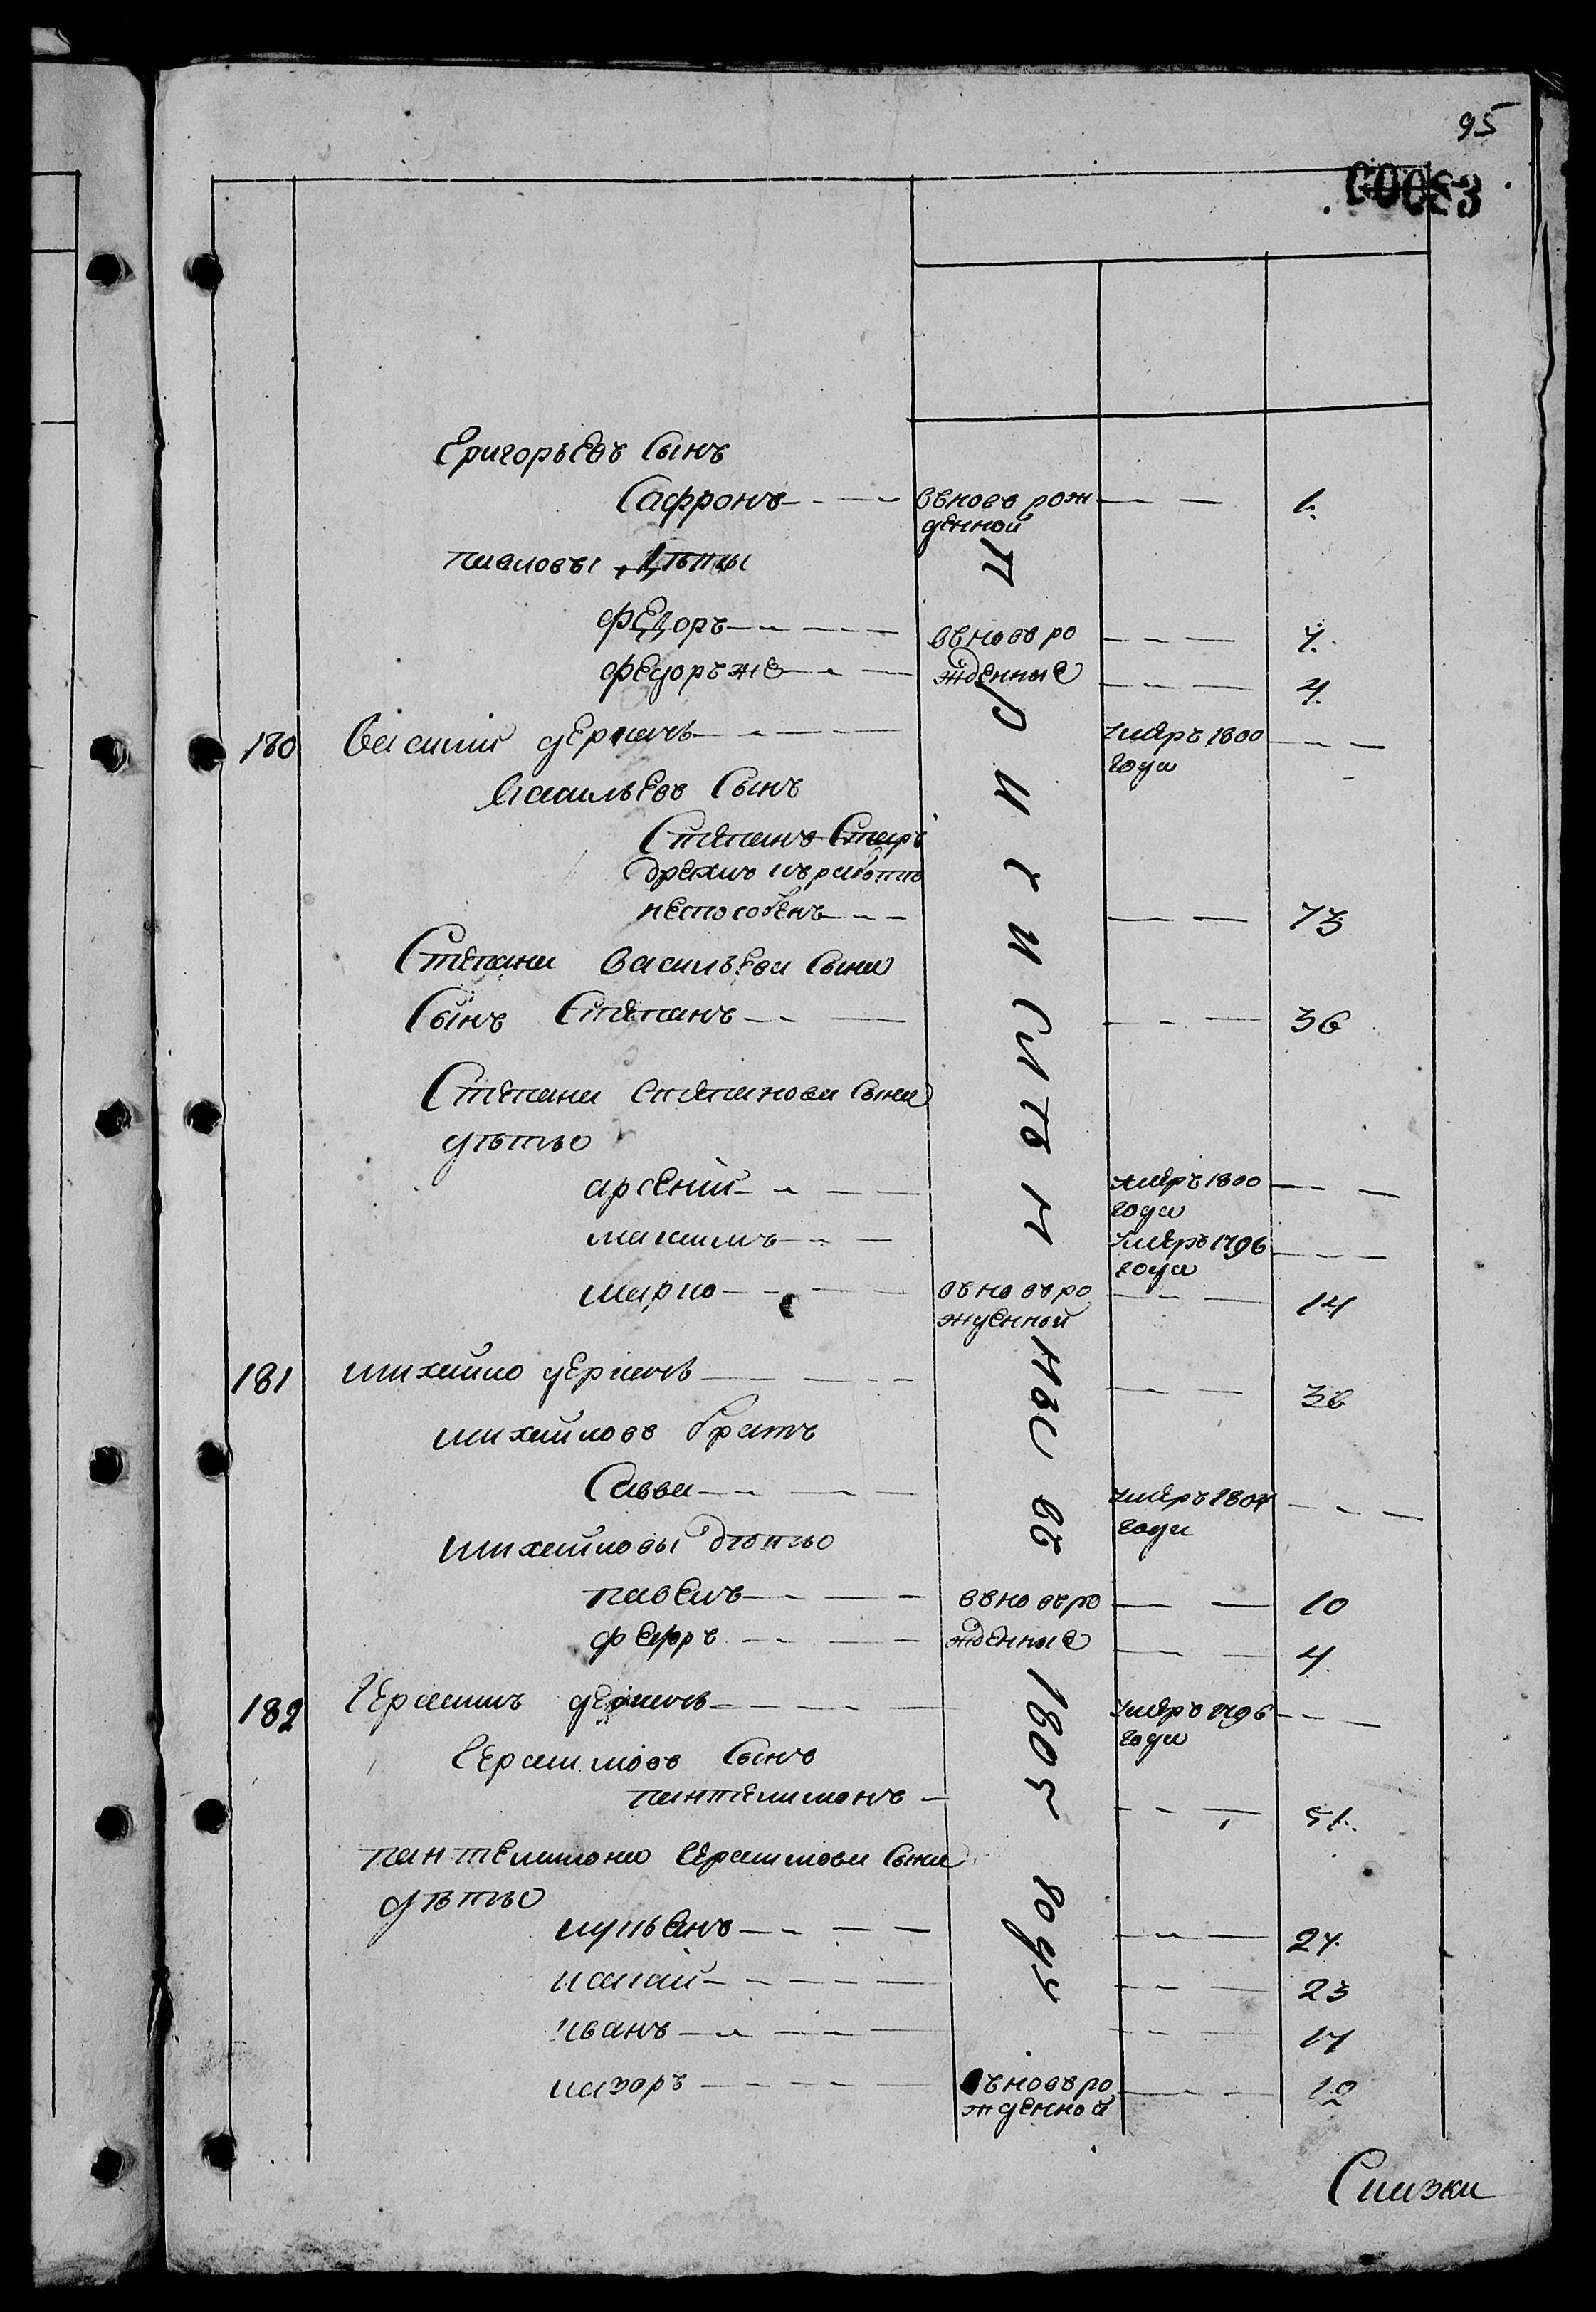 95
00083
Григорьевъ Сынъ
Сафронъ вновь рож 1.
денной
павловы дѣти
Федоръ вновь ро 7.
Федоръ же жденные 4.
180 Василий деркачь умеръ 1800
года
Васильевъ Сынъ
Степанъ Старъ
дряхлъ и к работѣ
неспособенъ 73
Степана Васильева Сына
Сынъ Степанъ 36
Степана Степанова Сына
дѣти
арсений умеръ 1800
года
максимъ умеръ 1796
года
марко вновь ро 14
жденной
181 михайло деркачь 36
михайловъ братъ
Савва умеръ 1804
года
михайловы дѣти
павелъ вновь ро 10
Федоръ жденные 4
182 Герасимъ деркачь умеръ 1796
года
Герасимовъ Сынъ
пантелимонъ 51.
пантелимона Герасимова Сына
дѣти
лукьянъ 27.
исай 23
иванъ 17
назаръ вновь ро 12
жденной
причислѣнные въ 1805 году
Сказки